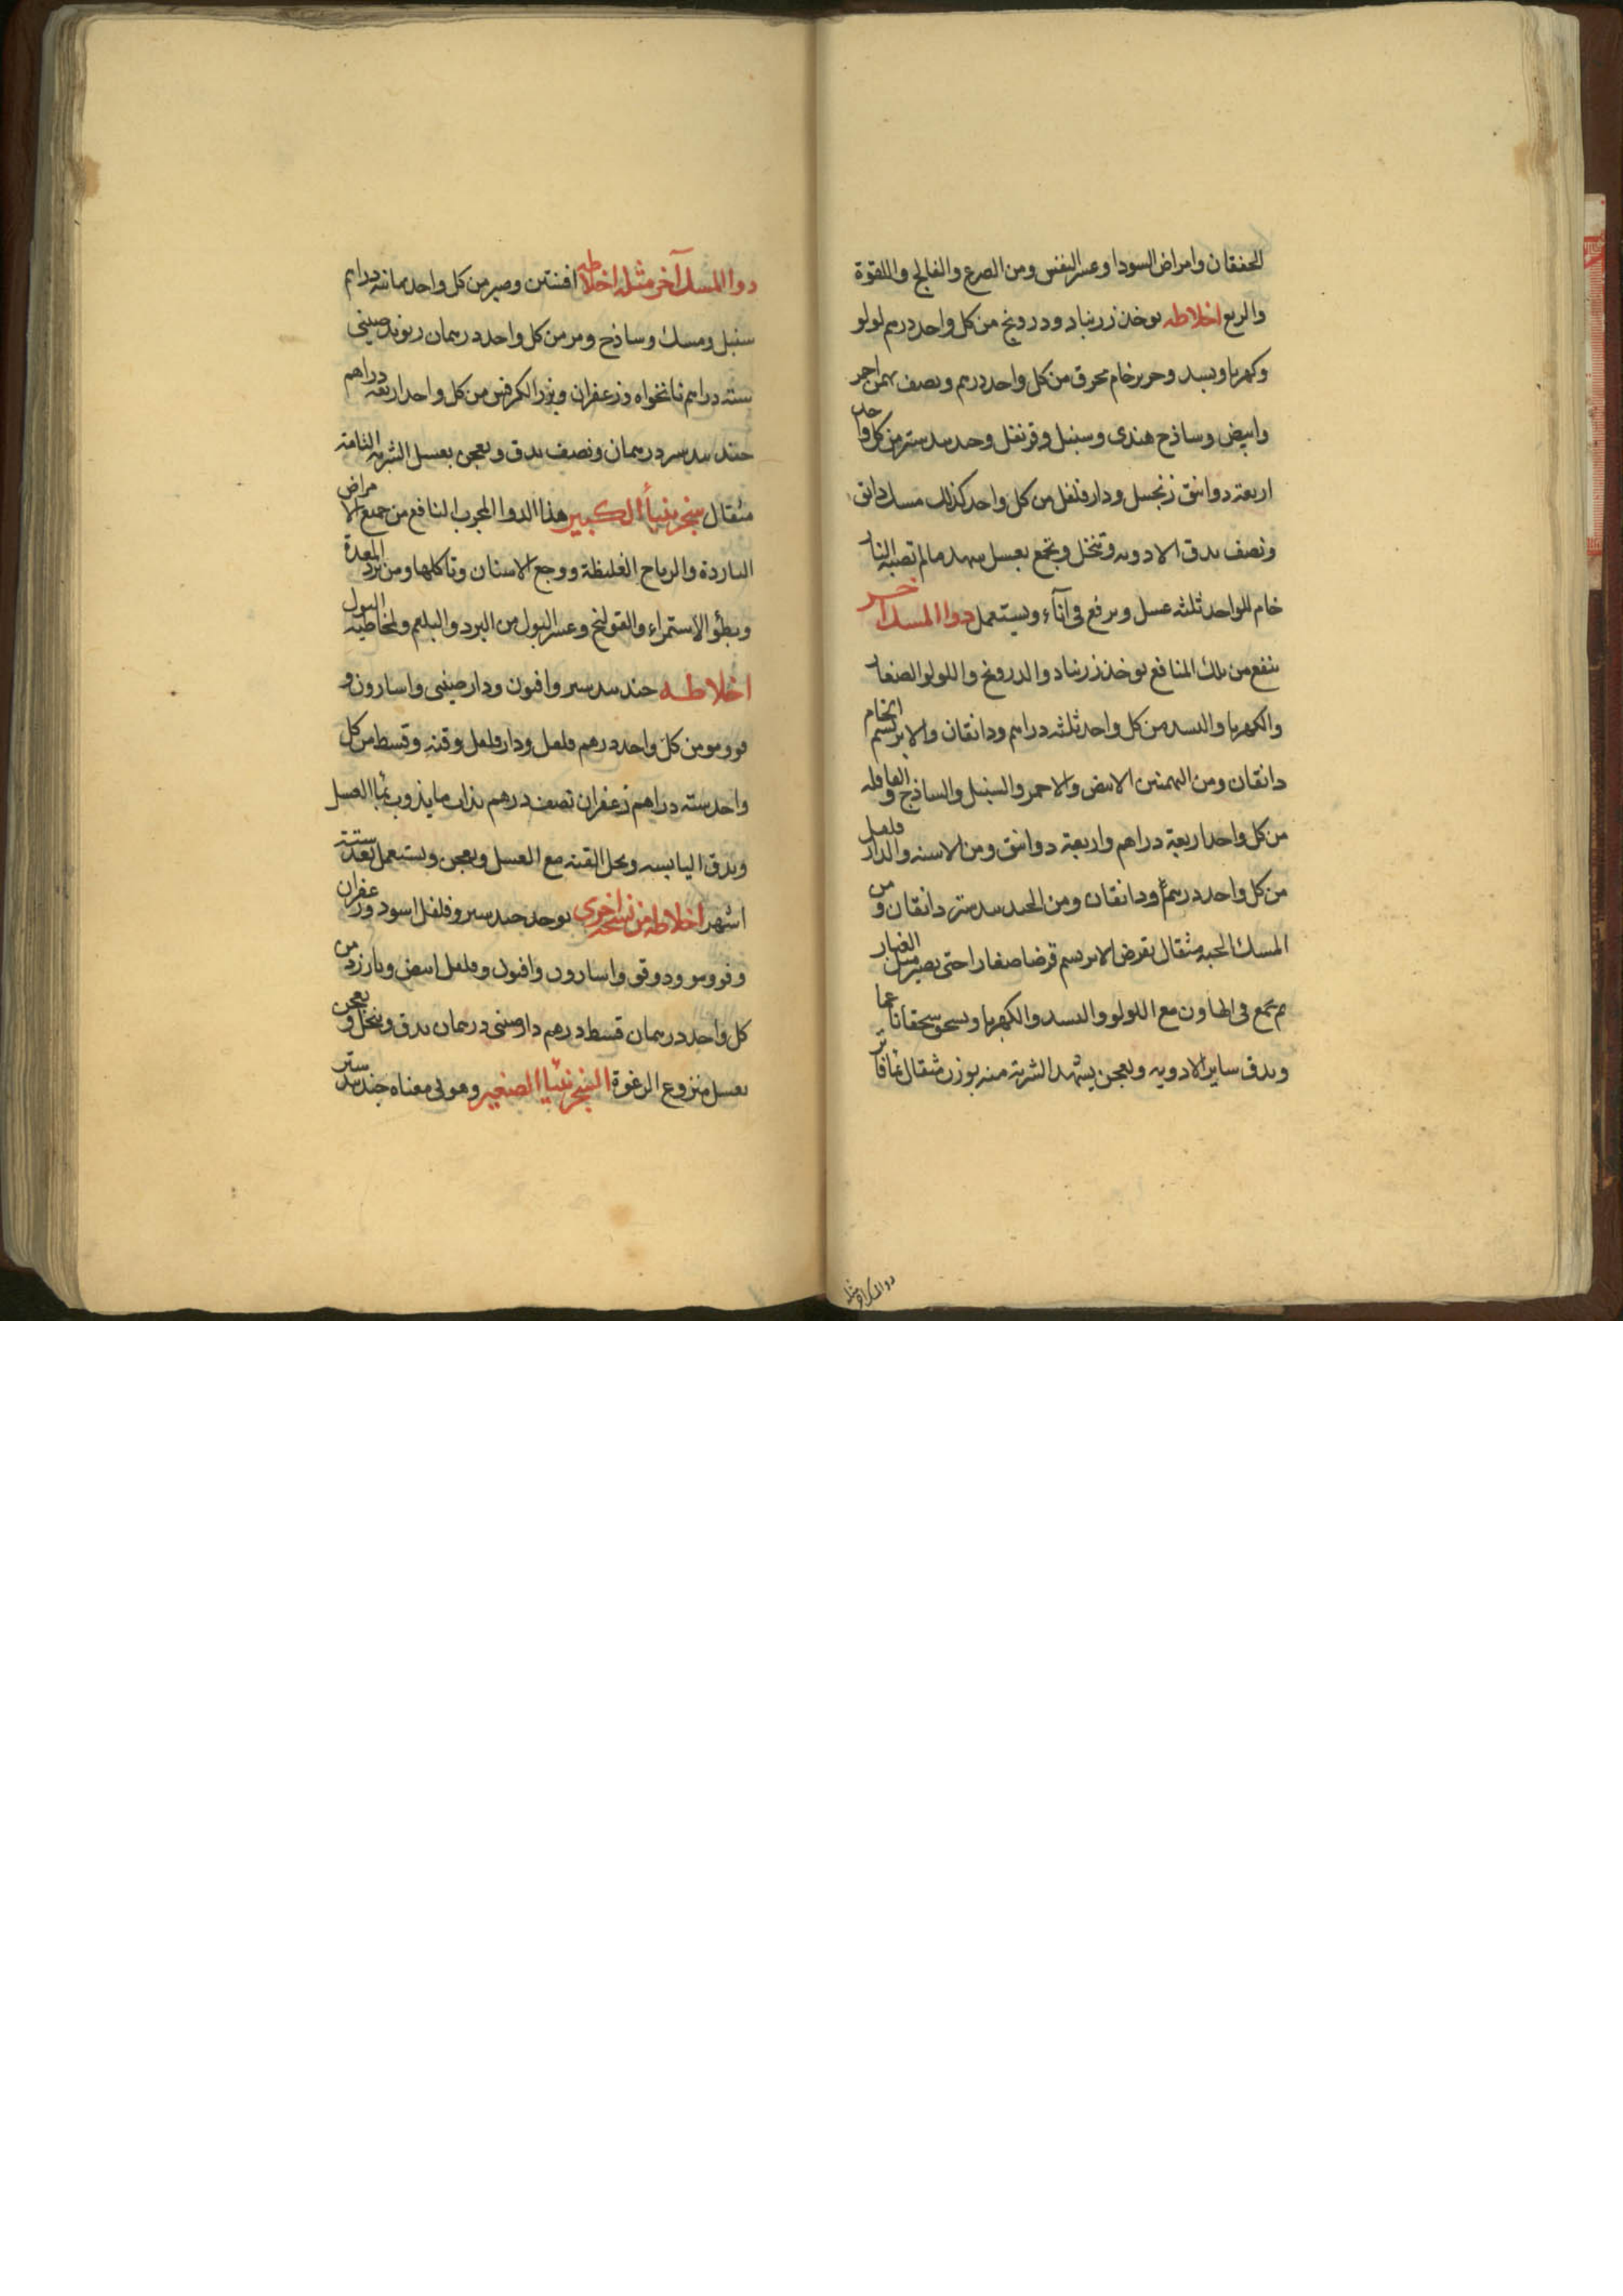 الخفقان وامراض السودا وعسر النفس ومن الصرع والفالج واللقوة
والربع اخلاطه يوخذ زرنباد ودرونج من كل واحد درهم لولو
وكهربا وبسد وحرير خام محرق من كل واحد درهم ونصف بهمن احمر
وابيض وساذج هندى وسنبل وقرنفل وجندبيدستر من كل واحد
اربعة دوانق زنجبيل ودارفلفل من كل واحد كذلك مسك دانق
ونصف يدق الادويه وتنخل وتجمع بعسل شهد مالم تصبه النار
خام للواحد ثلثه عسل ويرفع فى آناء ويستعمل دوا المسك اخر
ينفع من تلك المنافع يوخذ زرنباد والدرونج واللولو الصغار
والكهربا والبسد من كل واحد ثلثه دراهم ودانقان والابريسم الخام
دانقان ومن البهمنين الابيض والاحمر والسنبل والساذج والقاقله
من كل واحد اربعة دراهم واربعة دوانق ومن الاسنه والدارفلفل
من كل واحد درهم ودانقان ومن الجندبيدستر دانقان ومن
المسك الحبه مثقال يقرض الابريسم قرضا صغارا حتى يصير مثل الغبار
ثم يجمع فى الهاون مع اللولو والبسد والكهربا ويسحق سحقا ناعما
ويدق ساير الادويه ويعجن بشهد الشربة منه بوزن مثقال بماء فاتر
دوا المسك اخر مثله
دوا المسك آخر مثله اخلاطه افسنتين وصبر من كل واحد ثمانيه دراهم
سنبل ومسك وساذج ومر من كل واحد درهمان ريوند صينى
سته دراهم نانخواه وزعفران وبزر الكرفس من كل واحد اربعه دراهم
جندبيدستر درهمان ونصف يدق ويعجن بعسل الشربه التامة
مثقال سنجرنيا الكبير هذا الدوا المجرب النافع من جميع الامراض
الباردة والرياح الغليظة ووجع الاسنان وتاكلها ومن برد المعدة
وبطؤ الاستمراء والقولنج وعسر البول من البرد والبلغم ولمخاطية البول
اخلاطه جندبيدستر وافيون ودارصينى واسارون و
فو ومو من كل واحد درهم فلفل ودارفلفل وقنه وقسط من كل
واحد سته دراهم زعفران نصف درهم يذاب ما يذوب بماء العسل
ويدق اليابسه ويحل القنه مع العسل ويعجن ويستعمل بعد ستة
اشهر اخلاطه من نسخة اخرى يوخذ جندبيدستر وفلفل اسود وزعفران
وفو ومو ودوقو واسارون وافيون وفلفل ابيض وبارزد من
كل واحد درهمان قسط درهم دارصينى درهمان يدق وينخل ويعجن
بعسل منزوع الرغوة السنجرنيا الصغير وهو فى معناه جندبيدستر